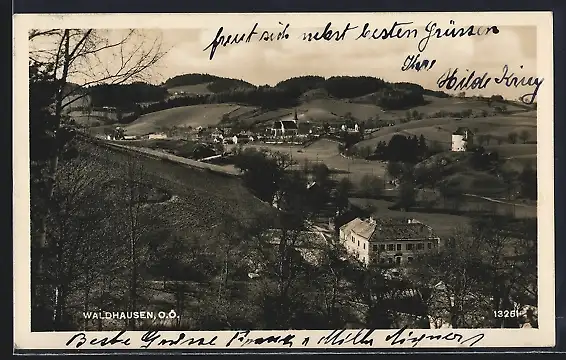 freut sich nebst besten Grüssen
Ihre
Hilde Krieg
WALDHAUSEN, O.Ö.
13261
Beste Grüsse Franz u Milli Aigner